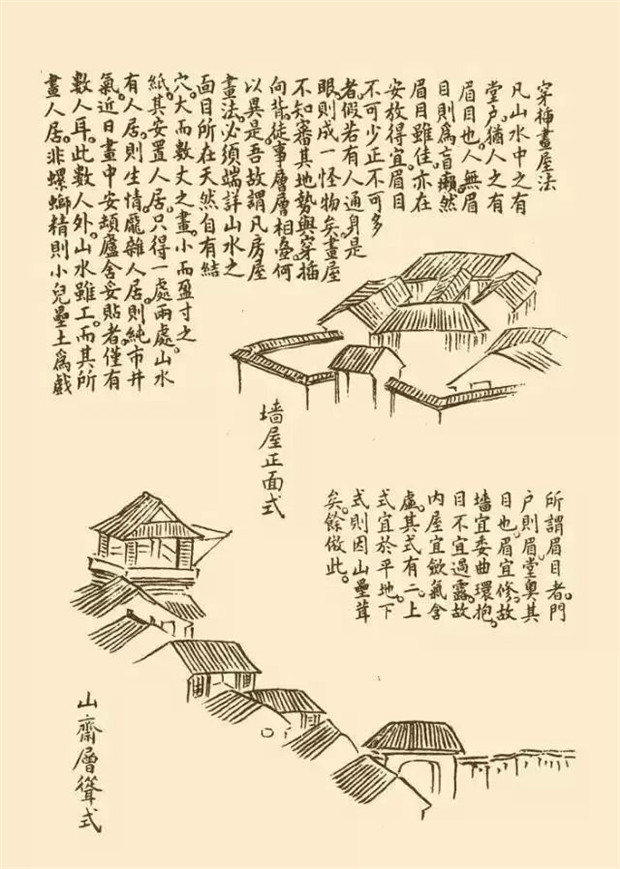 穿插畫屋法
凡山水中之有
堂戶猶人之有
眉目也。人無眉
目則爲盲癩。然
眉目雖佳。亦在
安放得宜。眉目
不可少正不可多
者。假若有人通身是
眼則成一怪物矣。畫屋
不知審其地勢與穿插
向背。徒事層層相壘。何
以異是。吾故謂凡房屋
畫法。必須端詳山水之
面目所在天然自有結
穴。大而數丈之畫。小而盈寸之
紙。其安置人居。只得一處兩處。山水
有人居。則生情。龐雜人居。則純市井
氣。近日畫中安頓廬舍妥貼者。僅有
數人耳。此數人外。山水雖工。而其所
畫人居。非螺螄精則小兒壘土爲戲
墻屋正面式
所謂眉目者。門
戶則眉堂奧其
目也。眉宜修。故
墻宜委曲環抱。
目不宜過露。故
內屋宜歛氣含
虛。其式有二。上
式宜於平地。下
式則因山壘葺
矣。餘倣此。
山齋層聳式